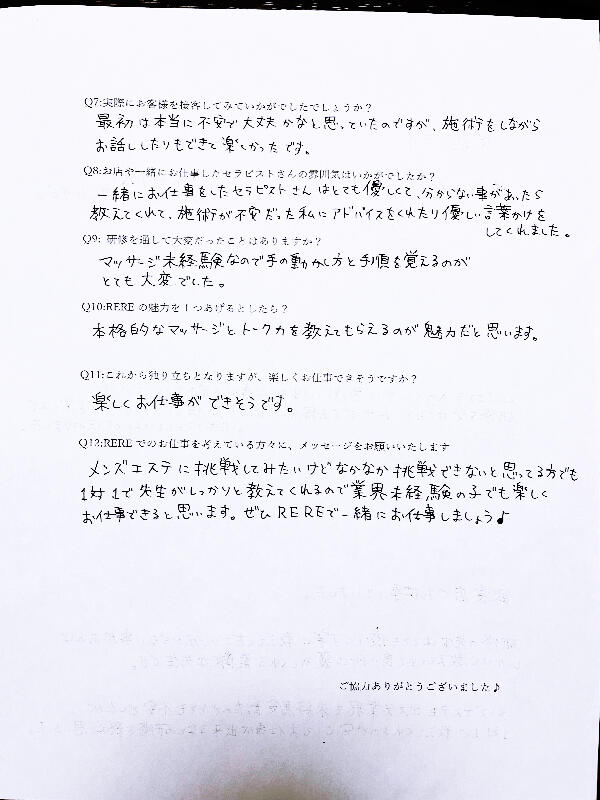 Q7:実際にお客様を接客してみていかがでしたでしょうか？
最初は本当に不安で大丈夫かなと思っていたのですが、施術をしながら
お話ししたりもできて楽しかったです。
Q8:お店や一緒にお仕事したセラピストさんの雰囲気はいかがでしたか？
一緒にお仕事をしたセラピストさんはとても優しくて、分からない事があったら
教えてくれて、施術が不安だった私にアドバイスをくれたり優しい言葉かけを
してくれました。
Q9: 研修を通して大変だったことはありますか？
マッサージ未経験なので手の動かし方と手順を覚えるのが
とても大変でした。
Q10:RERE の魅力を１つあげるとしたら？
本格的なマッサージとトーク力を教えてもらえるのが魅力だと思います。
Q11:これから独り立ちとなりますが、楽しくお仕事できそうですか？
楽しくお仕事ができそうです。
Q12:RERE でのお仕事を考えている方々に、メッセージをお願いいたします
メンズエステに挑戦してみたいけどなかなか挑戦できないと思ってる方でも
1対1で先生がしっかりと教えてくれるので業界未経験の子でも楽しく
お仕事できると思います。ぜひREREで一緒にお仕事しましょう♪
ご協力ありがとうございました♪